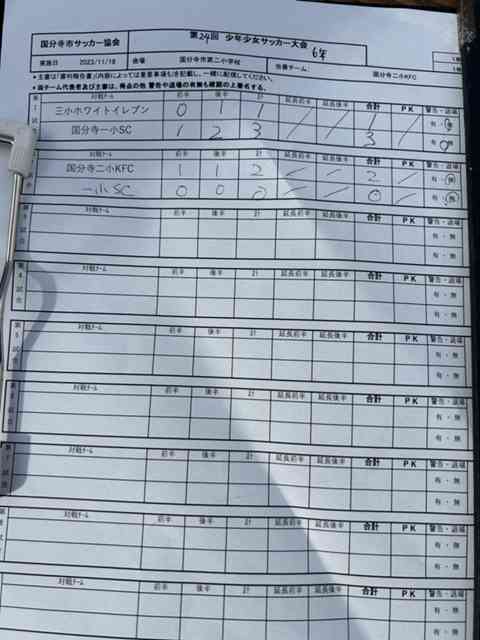 国分寺市サッカー協会 第24回 少年少女サッカー大会 6年
実施日 2023/11/18 会場 国分寺市第二小学校 当番チーム 国分寺二小KFC
第1試合 対戦チーム 前半 後半 計 延長前半 延長後半 合計 PK 警告・退場
三小ホワイトイレブン 0 1 1 / / 1 / 有・無
国分寺一小SC 1 2 3 / / 3 / 有・無
対戦チーム 前半 後半 計 延長前半 延長後半 合計 PK 警告・退場
国分寺二小KFC 1 1 2 / / 2 / 有・無
一小SC 0 0 0 / / 0 / 有・無
対戦チーム 前半 後半 計 延長前半 延長後半 合計 PK 警告・退場
有・無
第4試合 対戦チーム 前半 後半 計 延長前半 延長後半 合計 PK 警告・退場
有・無
第5試合 対戦チーム 前半 後半 計 延長前半 延長後半 合計 PK 警告・退場
有・無
対戦チーム 前半 後半 計 延長前半 延長後半 合計 PK 警告・退場
有・無
対戦チーム 前半 後半 計 延長前半 延長後半 合計 PK 警告・退場
有・無
対戦チーム 前半 後半 計 延長前半 延長後半 合計 PK 警告・退場
有・無
対戦チーム 前半 後半 計 延長前半 延長後半 合計 PK 警告・退場
有・無